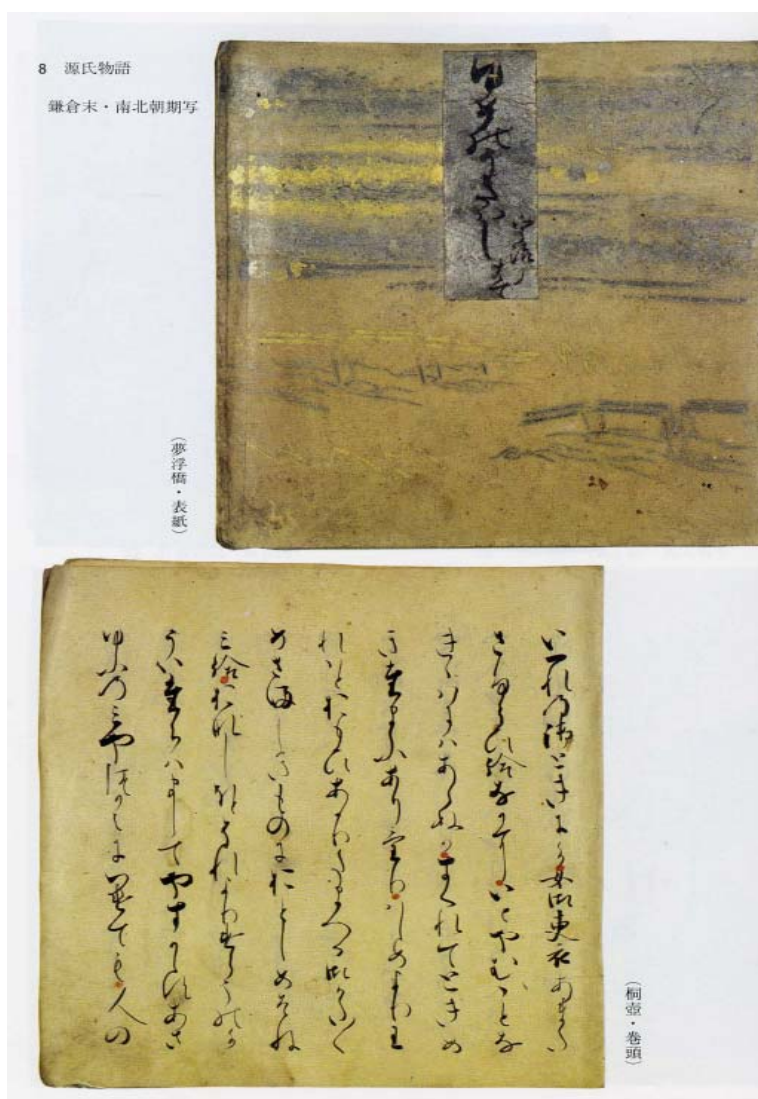 8 源氏物語
鎌倉末・南北朝期写
ゆめのうきはし
(夢浮橋・表紙)
いつれの御ときにか女御更衣あまた
さふらひ給なかにいとやむことな
ききはにはあらぬかすくれてときめ
きたまふありけりはしめよりわ
れはとおもひあかりたまへる御かたく
めさましきものにおとしめそね
み給おなしほとそれよりけらうのか
ういたちはましてやすからすあさ
ゆふのみやつかへにつけても人の
(桐壺・巻頭)